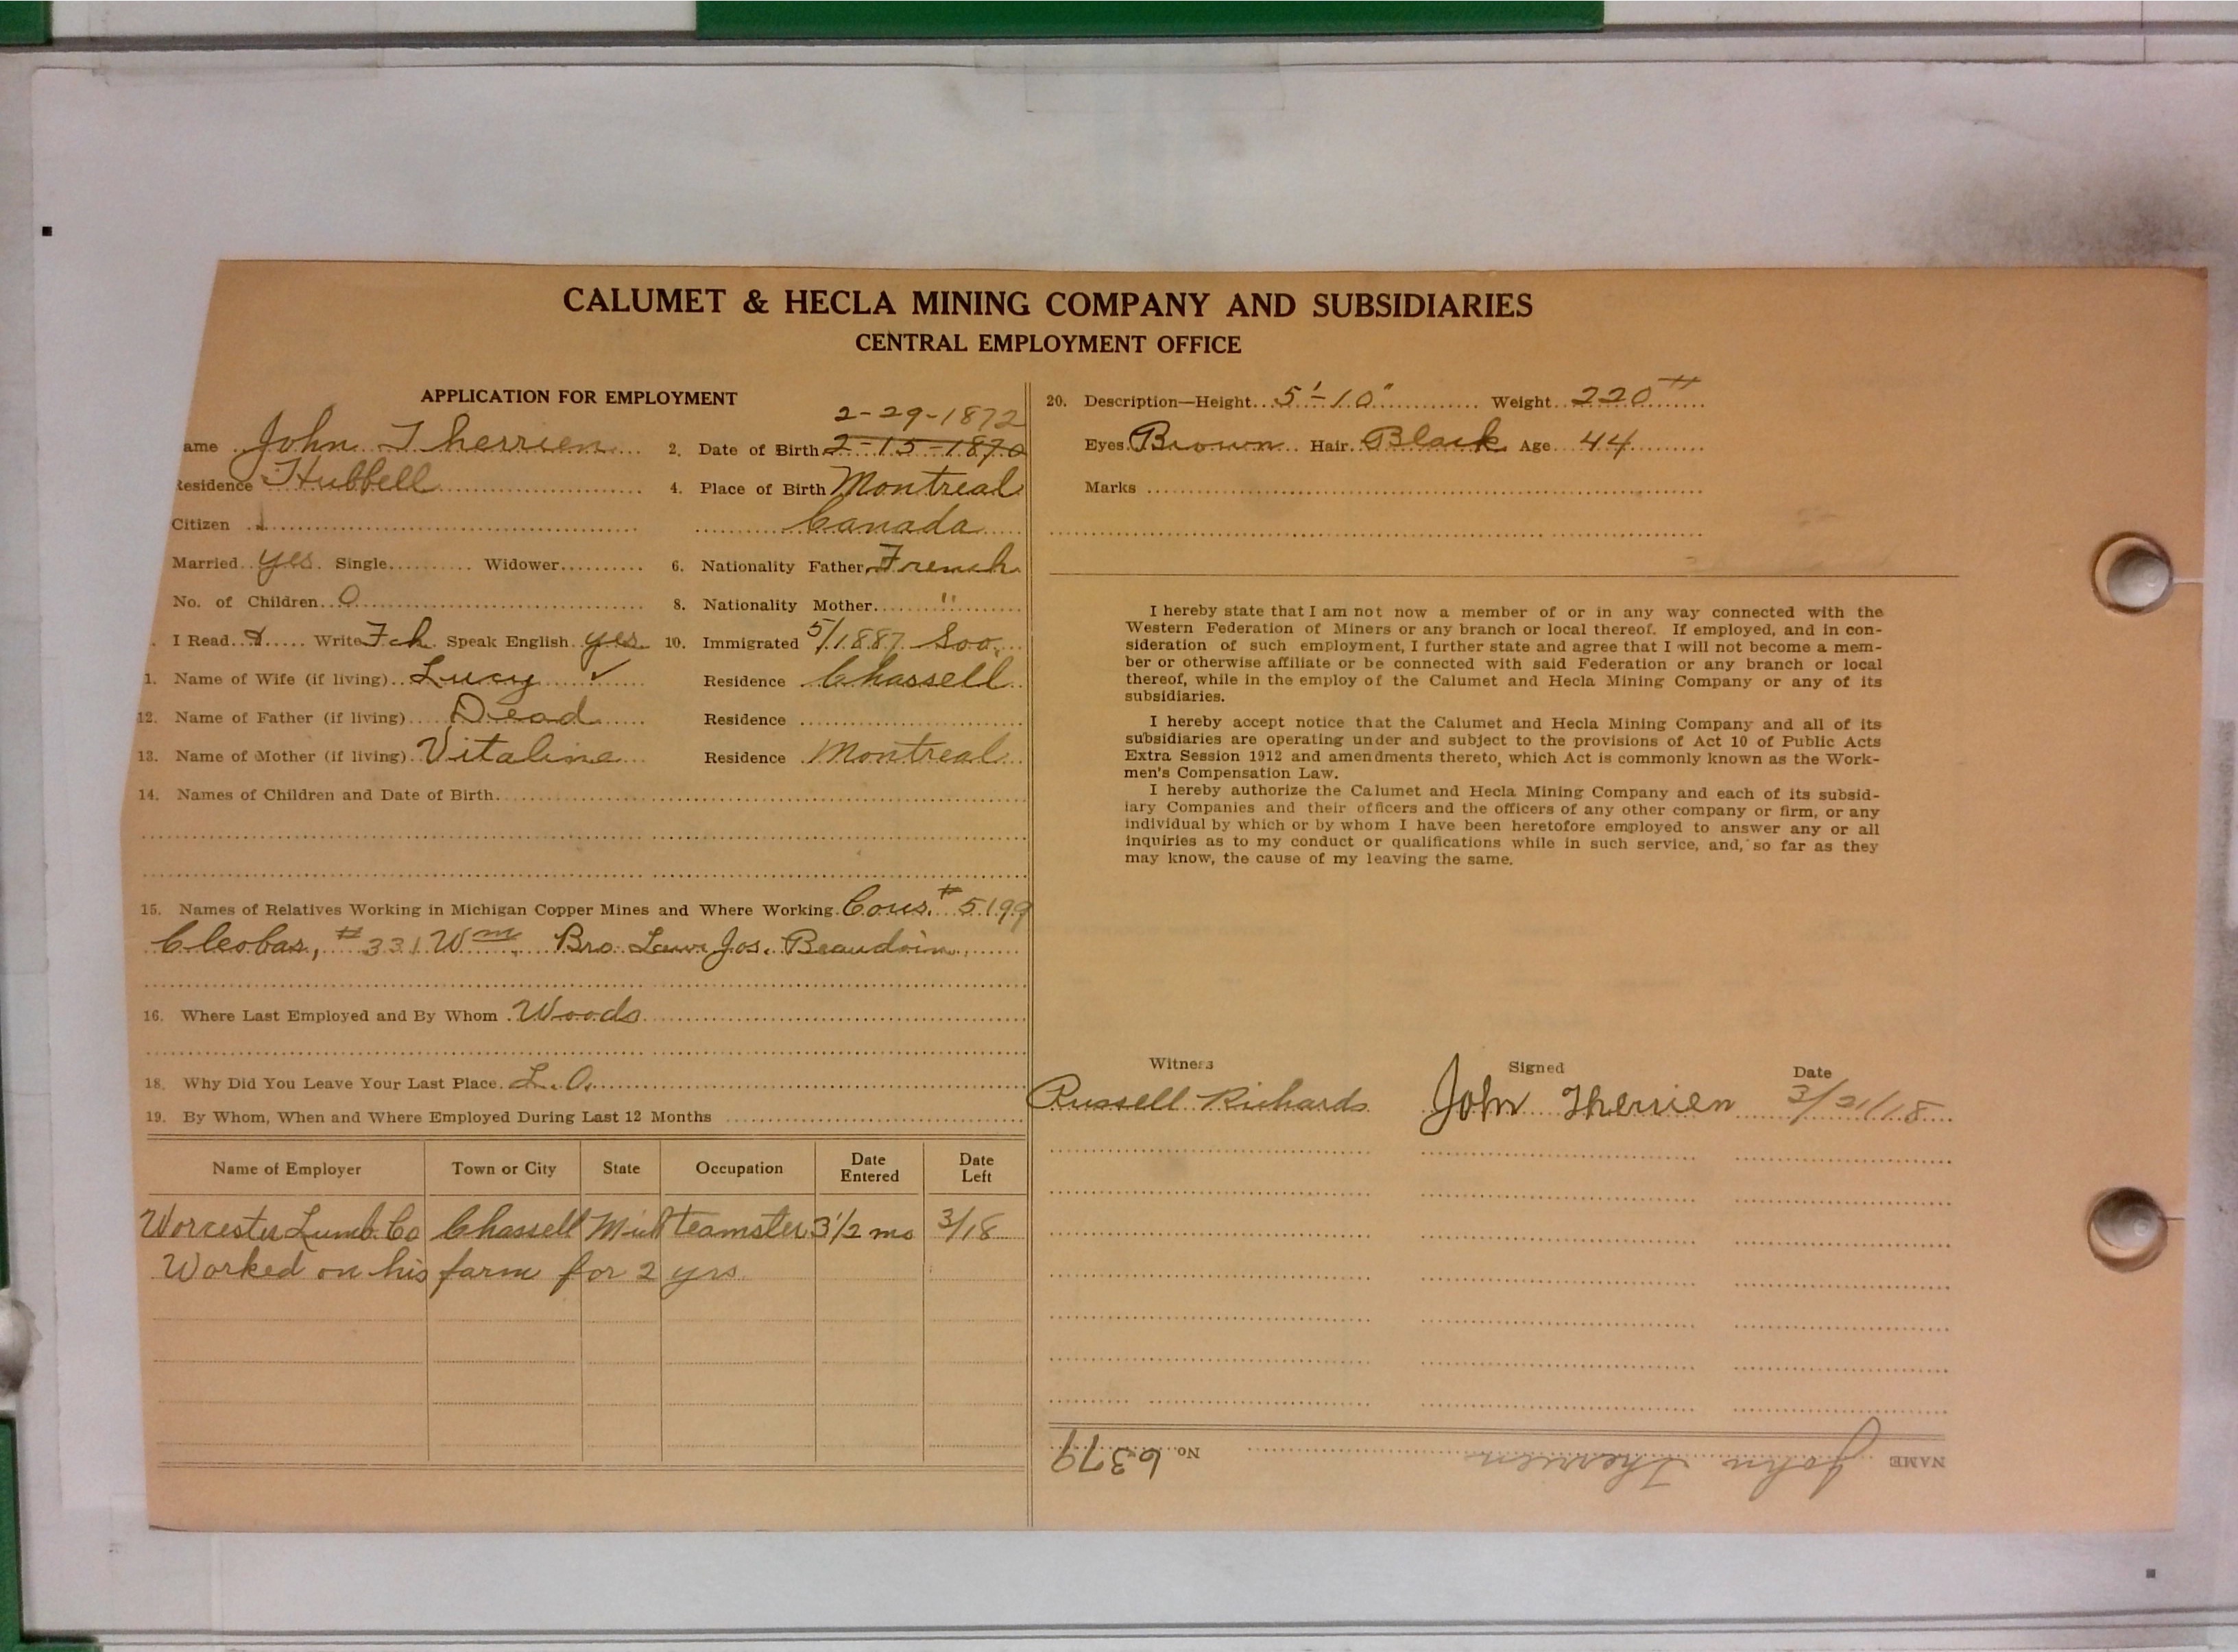 CALUMET & HECLA MINING COMPANY AND SUBSIDIARIES
CENTRAL EMPLOYMENT OFFICE
APPLICATION FOR EMPLOYMENT
2-29-1872
ame John Therrien 2. Date of Birth 2-15-1870
Residence Hubbell 4. Place of Birth Montreal
Citizen Canada
Married yes Single Widower 6. Nationality Father French
No. of Children 0 8. Nationality Mother "
I Read Write Fch Speak English yes 10. Immigrated 5/1887 Soo
1. Name of Wife (if living) Lucy ✓ Residence Chassell
12. Name of Father (if living) Dead Residence
13. Name of Mother (if living) Vitaline Residence Montreal
14. Names of Children and Date of Birth
15. Names of Relatives Working in Michigan Copper Mines and Where Working Cous. #5199
Cleobas, #331 Wm Bro. Law Jos. Beaudoin
16. Where Last Employed and By Whom Woods
18. Why Did You Leave Your Last Place. L.O.
19. By Whom, When and Where Employed During Last 12 Months
Name of Employer Town or City State Occupation Date Entered Date Left
Worcester Lumb. Co Chassell Mich teamster 3 1/2 mo 3/18
Worked on his farm for 2 yrs.
20. Description—Height 5'-10" Weight 220#
Eyes Brown Hair Black Age 44
Marks
I hereby state that I am not now a member of or in any way connected with the
Western Federation of Miners or any branch or local thereof. If employed, and in con-
sideration of such employment, I further state and agree that I will not become a mem-
ber or otherwise affiliate or be connected with said Federation or any branch or local
thereof, while in the employ of the Calumet and Hecla Mining Company or any of its
subsidiaries.
I hereby accept notice that the Calumet and Hecla Mining Company and all of its
subsidiaries are operating under and subject to the provisions of Act 10 of Public Acts
Extra Session 1912 and amendments thereto, which Act is commonly known as the Work-
men's Compensation Law.
I hereby authorize the Calumet and Hecla Mining Company and each of its subsid-
iary Companies and their officers and the officers of any other company or firm, or any
individual by which or by whom I have been heretofore employed to answer any or all
inquiries as to my conduct or qualifications while in such service, and, so far as they
may know, the cause of my leaving the same.
Witness Signed Date
Russell Richards John Therrien 3/21/18
NAME John Therrien No. 6379